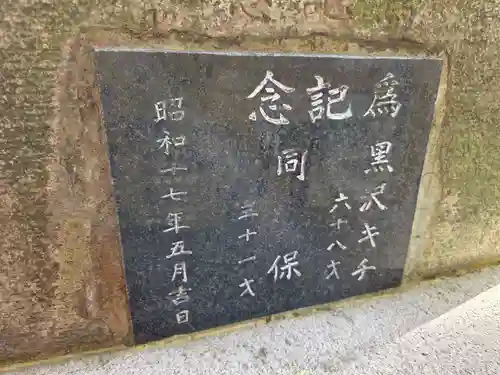 為黒沢キチ
六十八才
記念
同保
三十一才
昭和十七年五月吉日